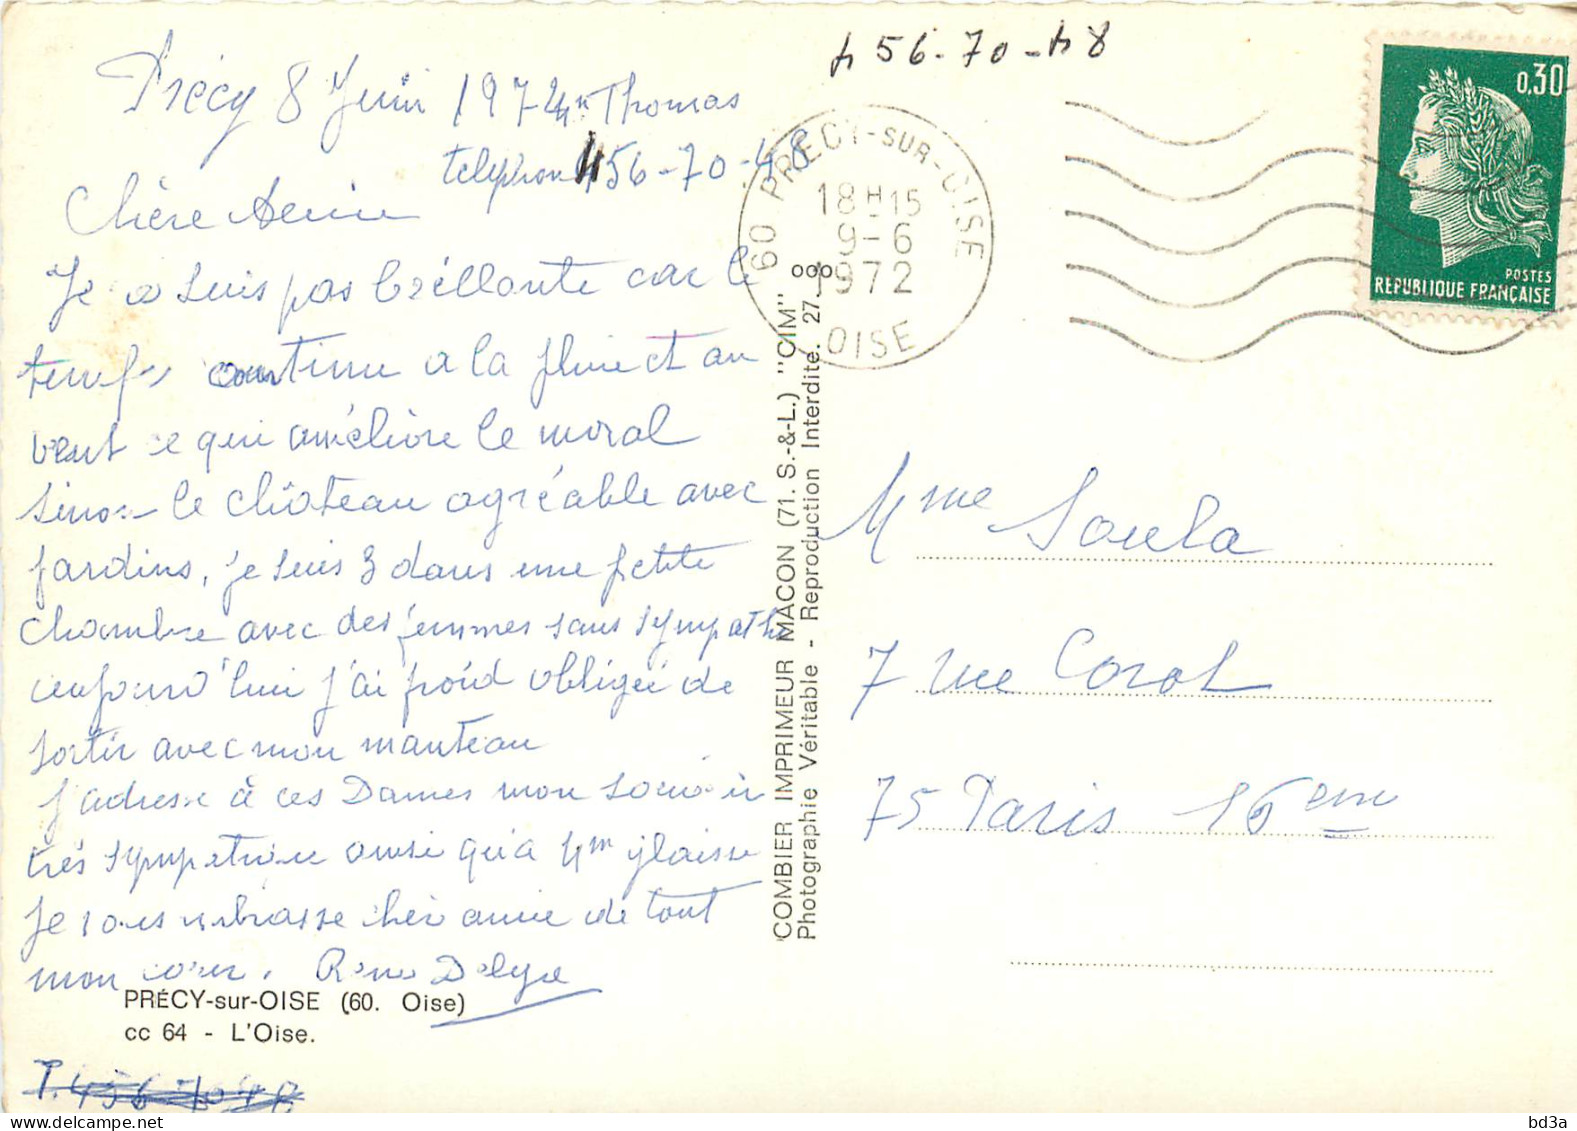 4 56-70-48
Précy 8 Juin 1972 Thomas
telephone 456-70-48
Chère Amie
Je suis pas brillante car le
temps continue a la pluie et au
vent ce qui améliore le moral
sinon le château agréable avec
jardins, je suis 3 dans une petite
chambre avec des femmes sans sympathie
aujourd'hui j'ai froid obligée de
sortir avec mon manteau
J'adresse à ces Dames mon souvenir
très sympathique ainsi qu'a Mme
Je vous embrasse chère amie de tout
mon coeur.
PRÉCY-sur-OISE (60. Oise)
cc 64 - L'Oise.
T. 456-70-48
COMBIER IMPRIMEUR MACON (71. S.-&-L.) "CIM"
Photographie Véritable - Reproduction Interdite. 27.
60 PRÉCY-SUR-OISE
18H15
9-6
1972
OISE
0,30
POSTES
RÉPUBLIQUE FRANÇAISE
Mme Soula
7 rue Corot
75 Paris 16eme
bd3a
www.delcampe.net